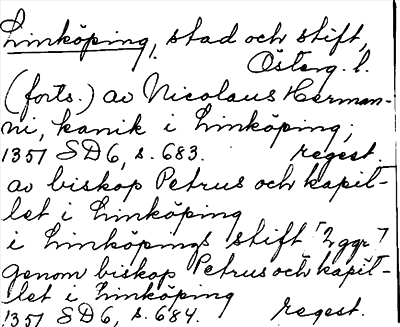 Linköping, stad och stift,
Österg. l.
(forts.) av Nicolaus Herman-
ni, kanik i Linköping;
1351 SD6, s. 683. regest.
av biskop Petrus och kapit-
let i Linköping
i Linköpings stift "2 ggr"
genom biskop Petrus och kapit-
let i Linköping
1351 SD6, s. 684. regest.